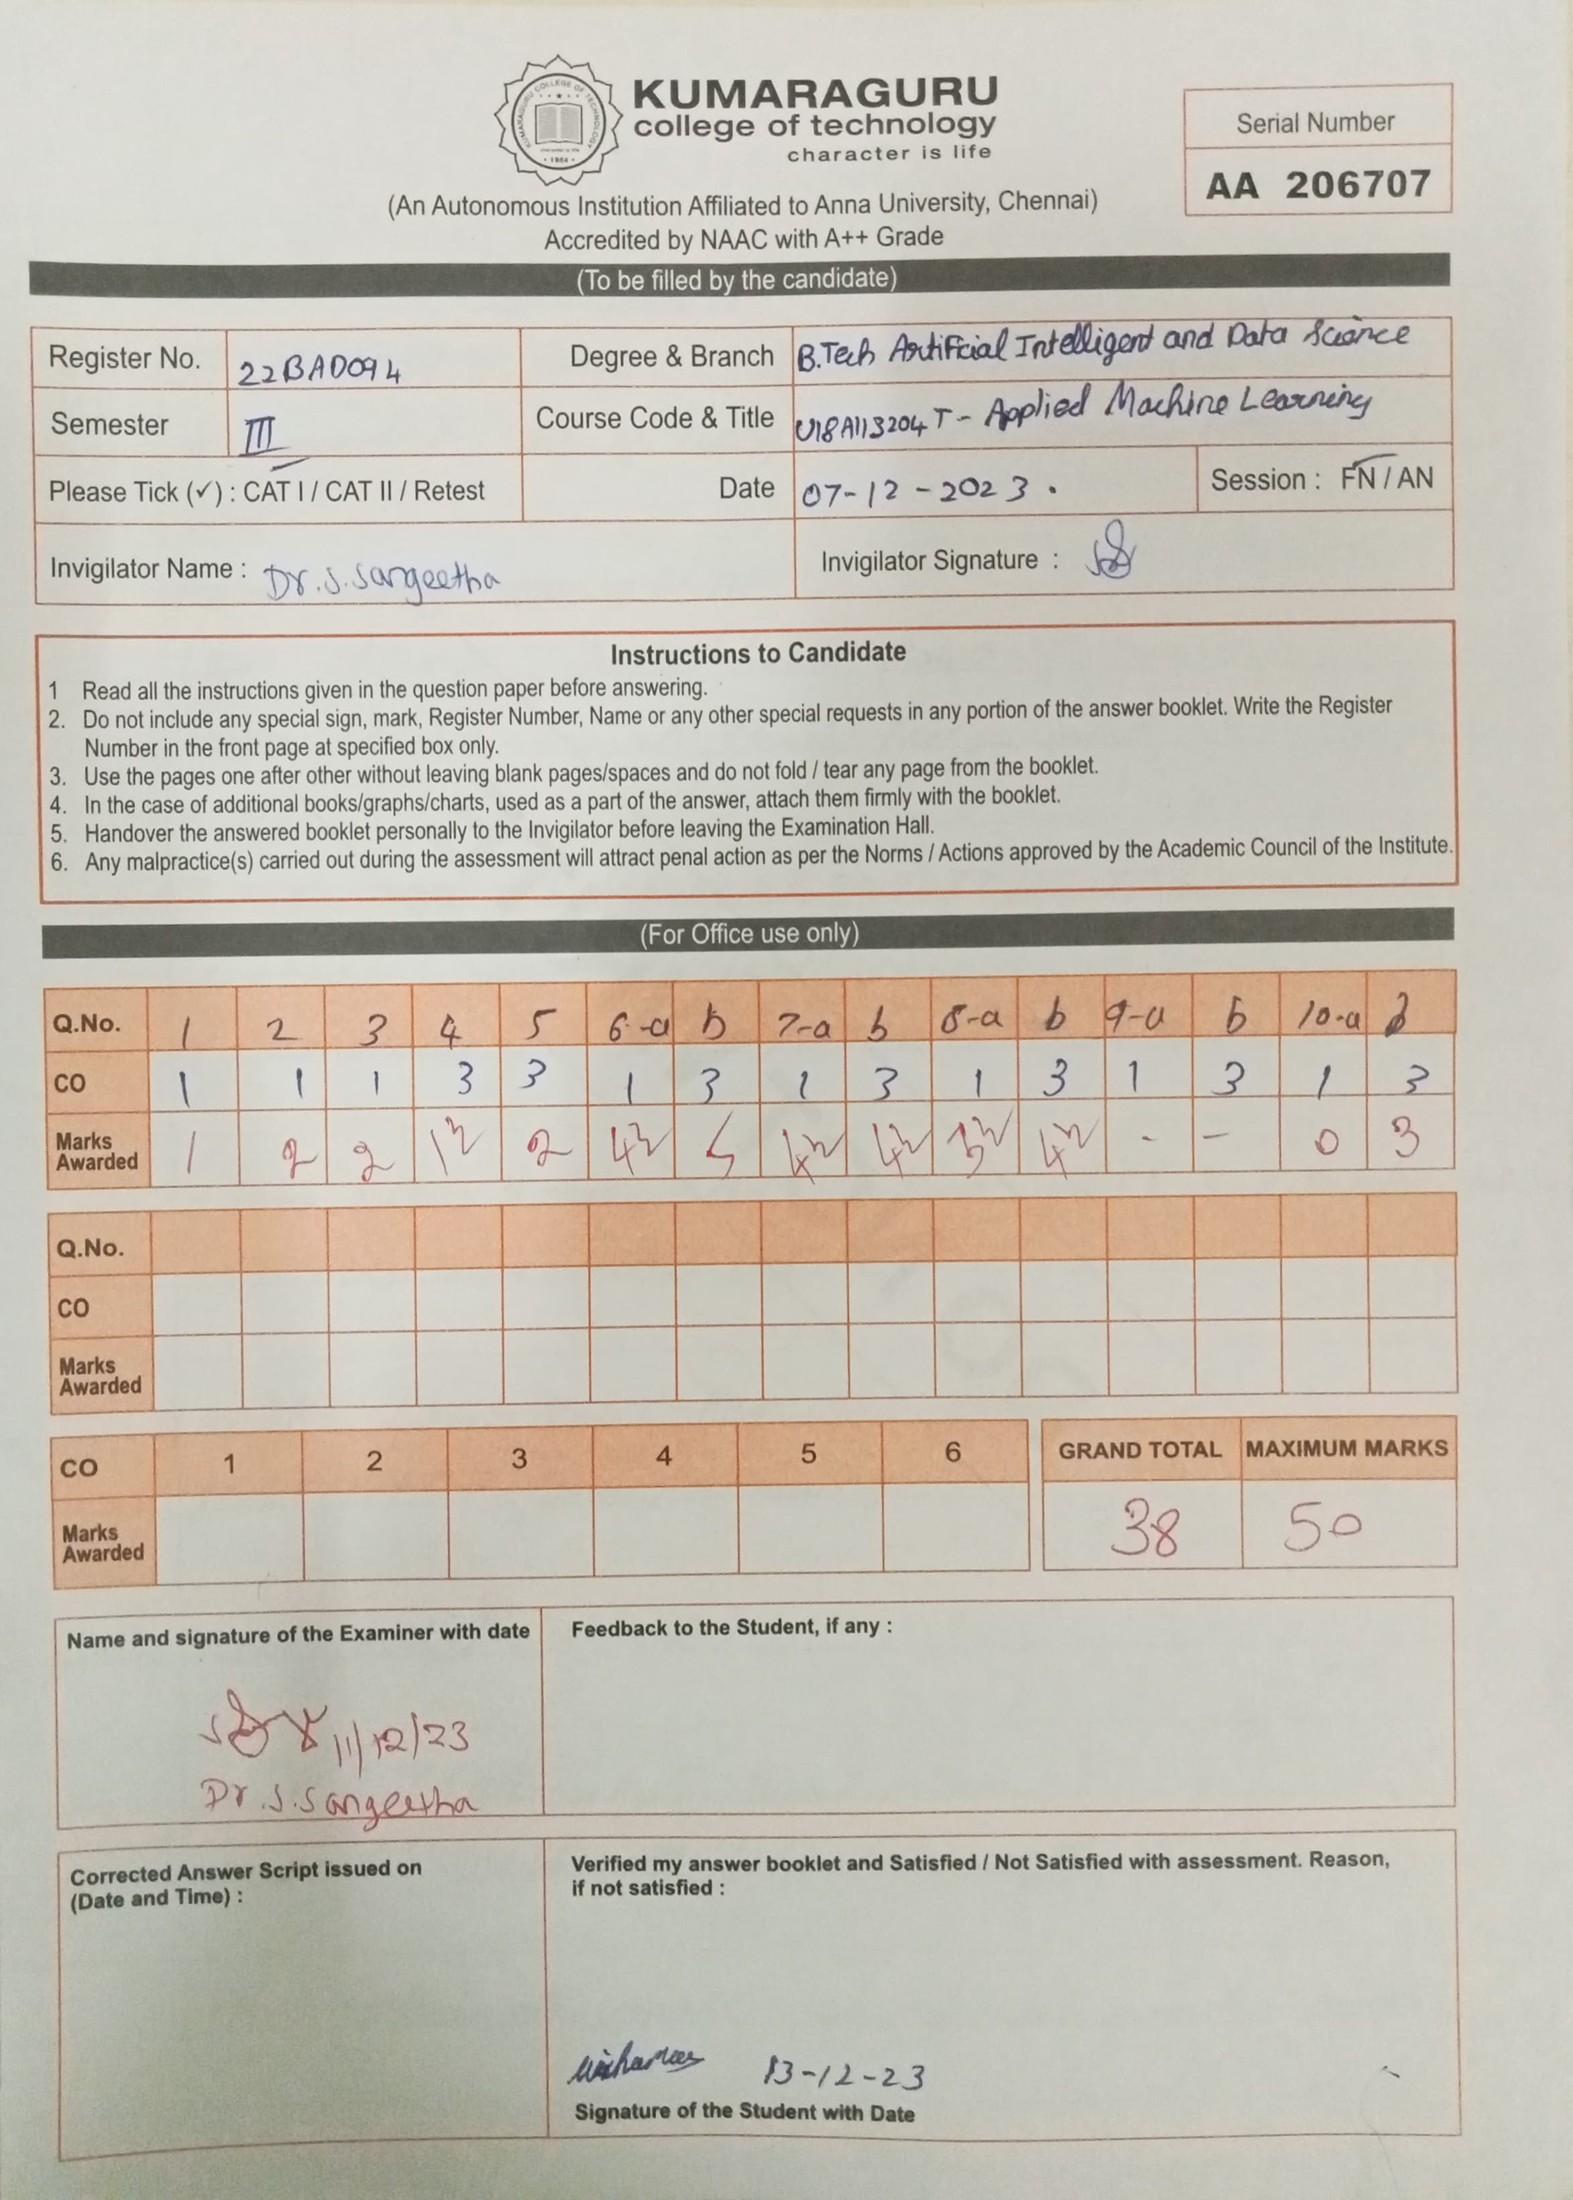 KUMARAGURU
college of technology
character is life
KUMARAGURU COLLEGE OF TECHNOLOGY
1984
Serial Number
AA 206707
(An Autonomous Institution Affiliated to Anna University, Chennai)
Accredited by NAAC with A++ Grade
(To be filled by the candidate)
Register No. 22BAD094 Degree & Branch B.Tech Artificial Intelligent and Data Science
Semester III Course Code & Title U18AII3204T - Applied Machine Learning
Please Tick (✓) : CAT I / CAT II / Retest Date 07-12-2023. Session : FN / AN
Invigilator Name : Dr.S.Sangeetha Invigilator Signature :
Instructions to Candidate
1 Read all the instructions given in the question paper before answering.
2. Do not include any special sign, mark, Register Number, Name or any other special requests in any portion of the answer booklet. Write the Register
Number in the front page at specified box only.
3. Use the pages one after other without leaving blank pages/spaces and do not fold / tear any page from the booklet.
4. In the case of additional books/graphs/charts, used as a part of the answer, attach them firmly with the booklet.
5. Handover the answered booklet personally to the Invigilator before leaving the Examination Hall.
6. Any malpractice(s) carried out during the assessment will attract penal action as per the Norms / Actions approved by the Academic Council of the Institute.
(For Office use only)
Q.No. 1 2 3 4 5 6-a b 7-a b 8-a b 9-a b 10-a b
CO 1 1 1 3 3 1 3 1 3 1 3 1 3 1 3
Marks Awarded 1 2 2 1½ 2 4½ 5 4½ 4½ 3½ 4½ - - 0 3
Q.No.
CO
Marks Awarded
CO 1 2 3 4 5 6 GRAND TOTAL MAXIMUM MARKS
Marks Awarded 38 50
Name and signature of the Examiner with date Feedback to the Student, if any :
11/12/23
Dr.S.Sangeetha
Corrected Answer Script issued on
(Date and Time) :
Verified my answer booklet and Satisfied / Not Satisfied with assessment. Reason,
if not satisfied :
13-12-23
Signature of the Student with Date